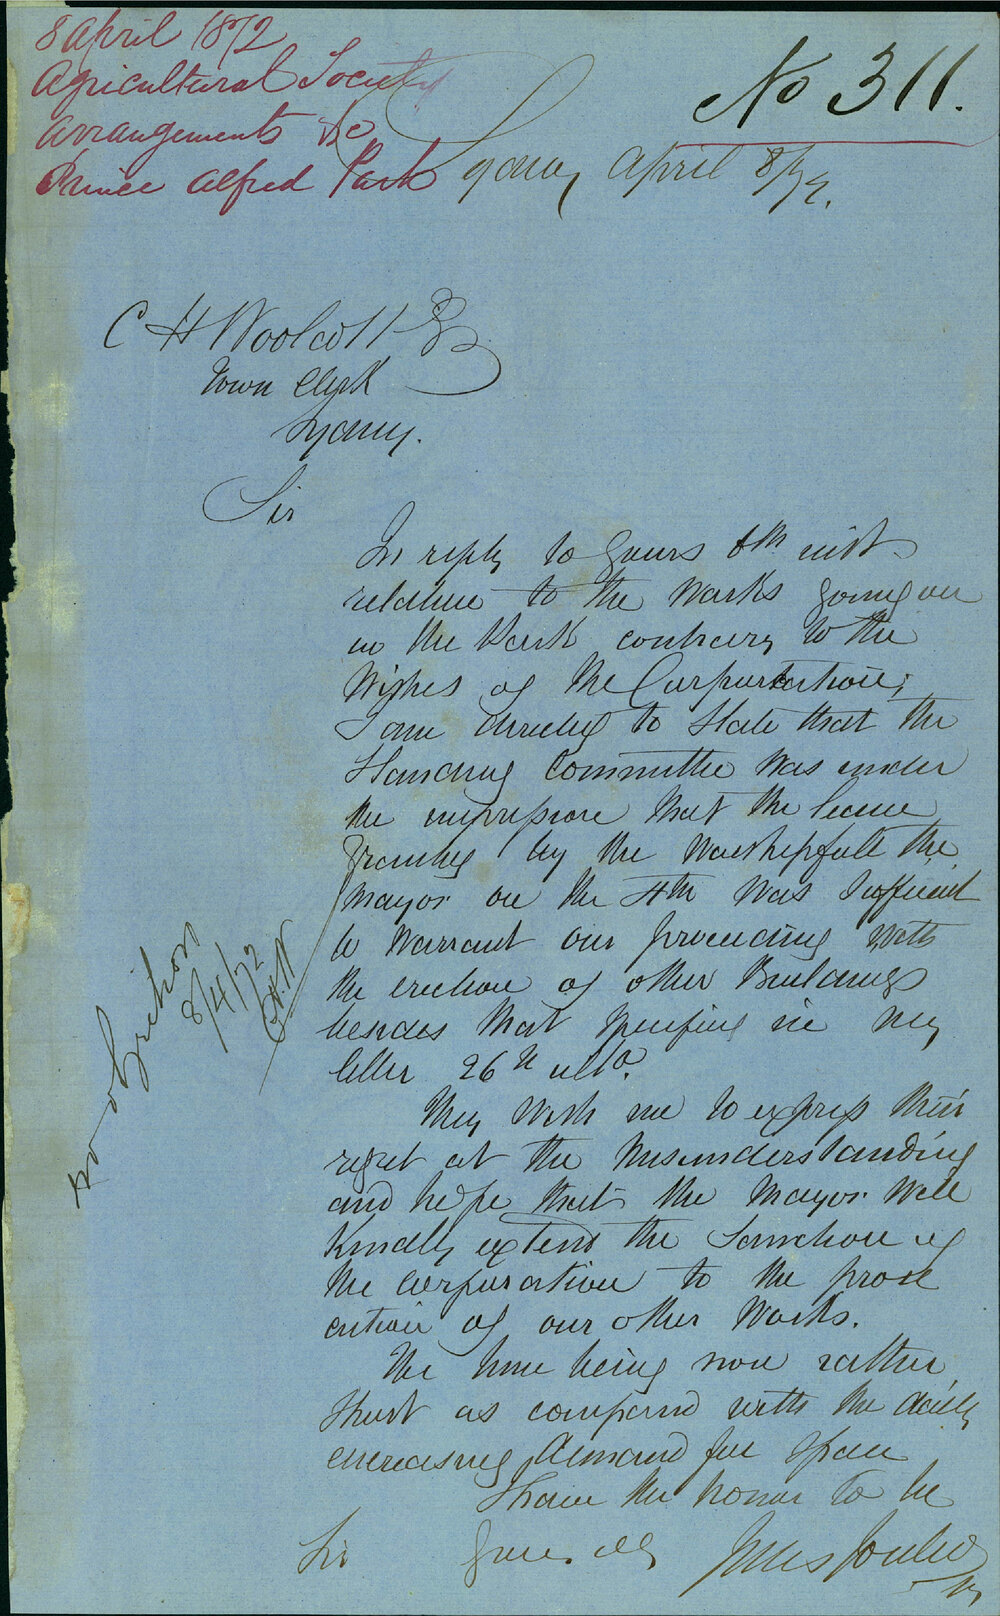 8 April 1872
Agricultural Society
Arrangements &c
Prince Alfred Park
No 311.
Sydney April 8/72.
C H Woolcott Esq
Town Clerk
Sydney.
Sir
In reply to yours 6th inst
relative to the works going on
in the Park contrary to the
Wishes of the Corporation;
I am directed to State that the
Standing Committee was under
the impression that the leave
granted by the Worshipfull the
Mayor on the 4th was Sufficient
to Warrant our proceeding with
the erection of other Buildings
besides that specified in my
letter 26th ulto.
They wish me to express their
regret at the Misunderstanding
and hope that the Mayor will
Kindly extend the Sanction of
the Corporation to the prose
cution of our other Works.
The time being now rather
Short as compared with the daily
increasing demand for Space
I have the honor to be
Sir
Yours &c
Jules Joubert
No objection
8/4/72
C.H.W